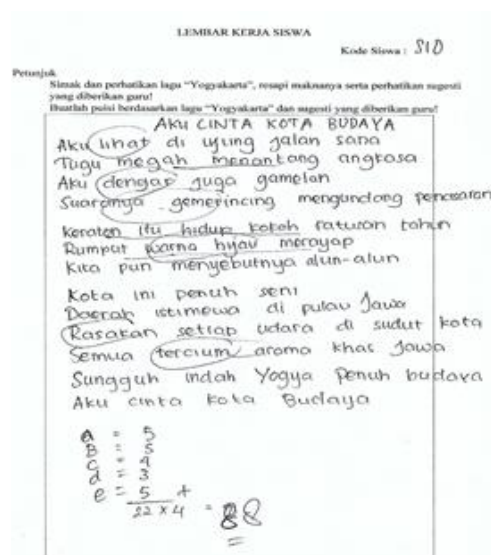 LEMBAR KERJA SISWA
Kode Siswa : S1D
Petunjuk
Simak dan perhatikan lagu "Yogyakarta", resapi maknanya serta perhatikan sugesti
yang diberikan guru!
Buatlah puisi berdasarkan lagu "Yogyakarta" dan sugesti yang diberikan guru!
AKU CINTA KOTA BUDAYA
Aku lihat di ujung jalan sana
Tugu megah menantang angkasa
Aku dengar juga gamelan
Suaranya gemerincing mengundang penasaran
Keraton itu hidup kokoh ratusan tahun
Rumput warna hijau merayap
Kita pun menyebutnya alun-alun
Kota ini penuh seni
Daerah istimewa di pulau Jawa
Rasakan setiap udara di sudut kota
Semua tercium aroma khas Jawa
Sungguh indah Yogya penuh budaya
Aku cinta kota Budaya
a = 5
B = 5
C = 4
d = 3
e = 5 +
22 x 4 = 88